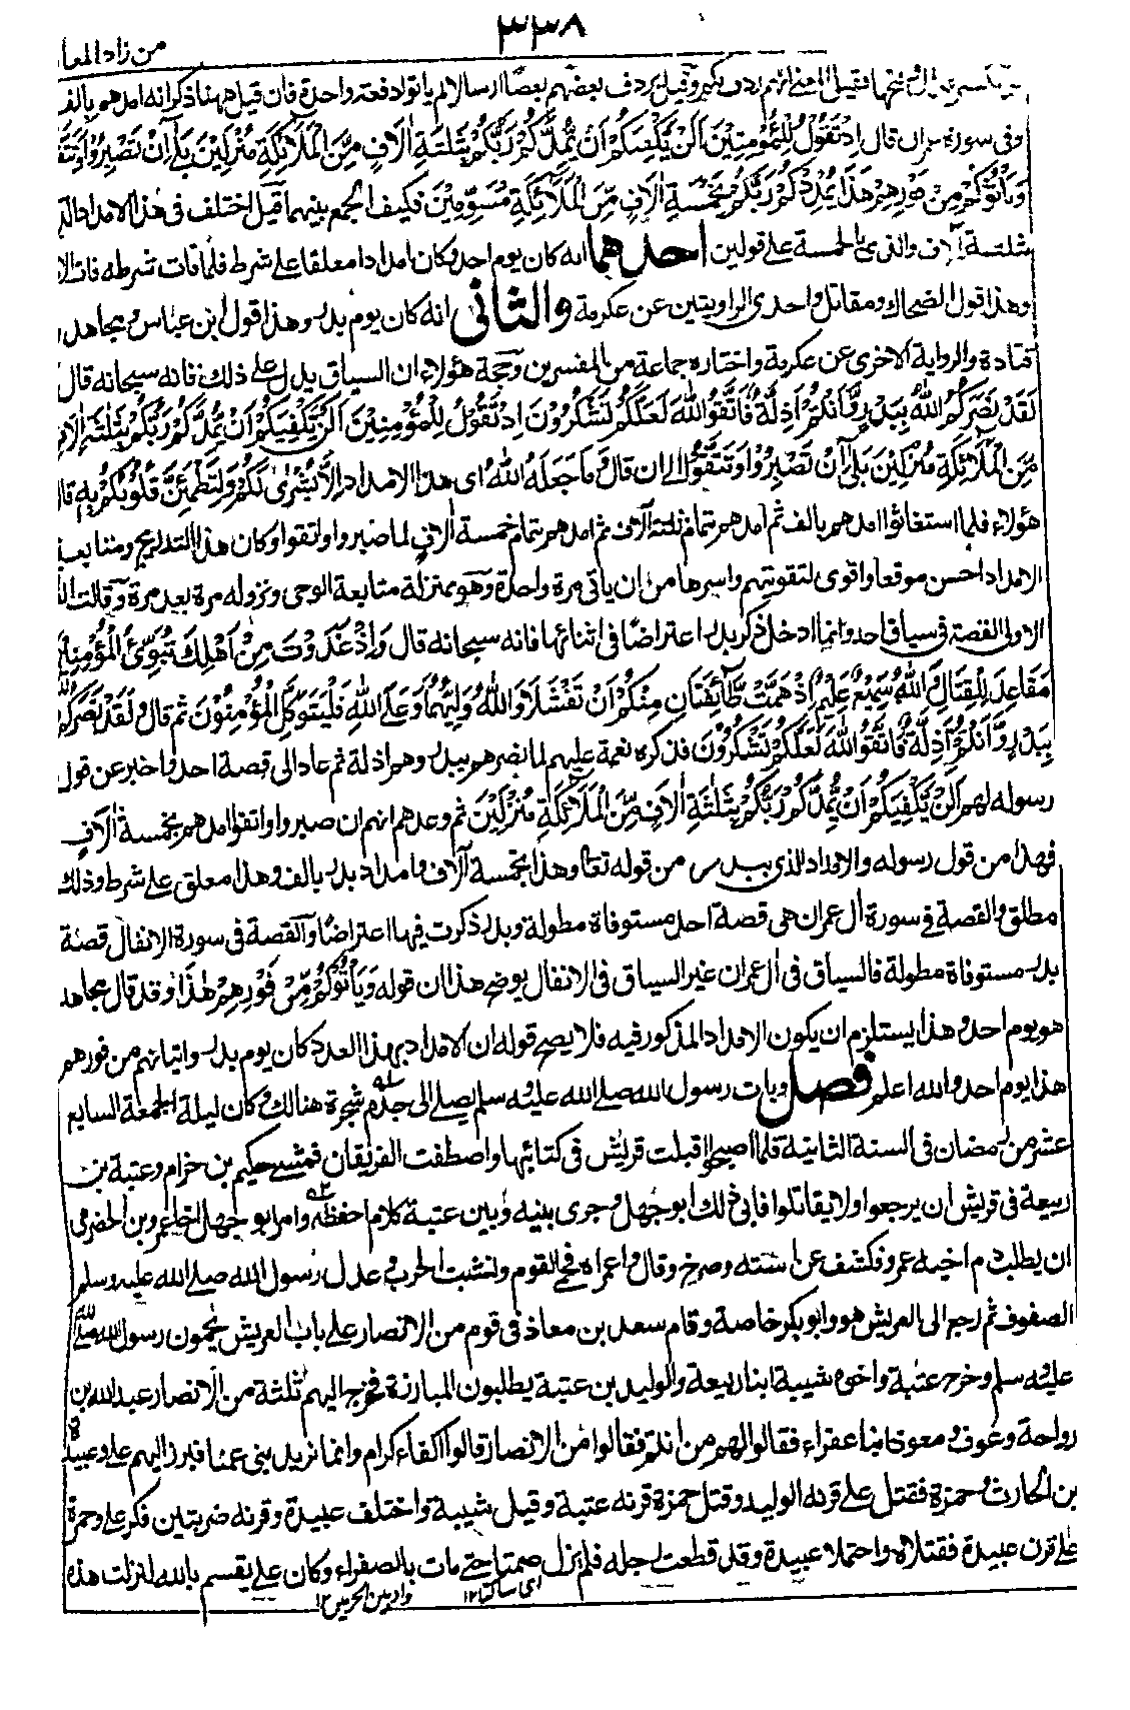 ٣٣٨
من زاد المعا
فقيل المعنى انهم ردف لكم وقيل يردف بعضهم بعضا ارسالا لم ياتوا دفعة واحدة فان قيل ههنا ذكر انه امدهم بالف
وفى سورة ال عمران قال اِذْ تَقُوْلُ لِلْمُؤْمِنِيْنَ اَلَنْ يَّكْفِيَكُمْ اَنْ يُّمِدَّكُمْ رَبُّكُمْ بِثَلٰثَةِ اٰلَافٍ مِّنَ الْمَلٰٓئِكَةِ مُنْزَلِيْنَ بَلٰٓى اِنْ تَصْبِرُوْا وَتَتَّقُ
وَيَاْتُوْكُمْ مِنْ فَوْرِهِمْ هٰذَا يُمْدِدْكُمْ رَبُّكُمْ بِخَمْسَةِ اٰلَافٍ مِّنَ الْمَلٰٓئِكَةِ مُسَوِّمِيْنَ فكيف الجمع بينهما قيل اختلف فى هذا الامداد الذى
بثلثة آلاف والذى بالخمسة على قولين احدهما انه كان يوم احد وكان امدادا معلقا على شرط فلما فات شرطه فات الا
وهذا قول الضحاك ومقاتل واحدى الروايتين عن عكرمة والثانى انه كان يوم بدر وهذا قول ابن عباس ومجاهد و
قتادة والرواية الاخرى عن عكرمة واختاره جماعة من المفسرين وحجة هؤلاء ان السياق يدل على ذلك فانه سبحانه قال
لَقَدْ نَصَرَكُمُ اللّٰهُ بِبَدْرٍ وَّاَنْتُمْ اَذِلَّةٌ فَاتَّقُوا اللّٰهَ لَعَلَّكُمْ تَشْكُرُوْنَ اِذْ تَقُوْلُ لِلْمُؤْمِنِيْنَ اَلَنْ يَّكْفِيَكُمْ اَنْ يُّمِدَّكُمْ رَبُّكُمْ بِثَلٰثَةِ اٰلَافٍ
مِّنَ الْمَلٰٓئِكَةِ مُنْزَلِيْنَ بَلٰٓى اِنْ تَصْبِرُوْا وَتَتَّقُوْا الى ان قال وَمَا جَعَلَهُ اللّٰهُ اى هذا الامداد اِلَّا بُشْرٰى لَكُمْ وَلِتَطْمَئِنَّ قُلُوْبُكُمْ بِهٖ قال
هؤلاء فلما استغاثوا امدهم بالف ثم امدهم بتمام ثلثة آلاف ثم امدهم بتمام خمسة آلاف لما صبروا واتقوا وكان هذا التدريج ومتابعة
الامداد احسن موقعا واقوى لتقويتهم واسر لها من ان ياتى مرة واحدة وهو بمنزلة متابعة الوحى ونزوله مرة بعد مرة وقالت الف
الاولى القصة فى سياق احد وانما ادخل ذكر بدر اعتراضا فى اثنائها فانه سبحانه قال وَاِذْ غَدَوْتَ مِنْ اَهْلِكَ تُبَوِّئُ الْمُؤْمِنِيْنَ
مَقَاعِدَ لِلْقِتَالِ وَاللّٰهُ سَمِيْعٌ عَلِيْمٌ اِذْ هَمَّتْ طَّآئِفَتَانِ مِنْكُمْ اَنْ تَفْشَلَا وَاللّٰهُ وَلِيُّهُمَا وَعَلَى اللّٰهِ فَلْيَتَوَكَّلِ الْمُؤْمِنُوْنَ ثم قال وَلَقَدْ نَصَرَكُمُ اللّٰهُ
بِبَدْرٍ وَّاَنْتُمْ اَذِلَّةٌ فَاتَّقُوا اللّٰهَ لَعَلَّكُمْ تَشْكُرُوْنَ فذكره نعمة عليهم لما نصرهم ببدر وهم اذلة ثم عاد الى قصة احد واخبر عن قول
رسوله لهم اَلَنْ يَّكْفِيَكُمْ اَنْ يُّمِدَّكُمْ رَبُّكُمْ بِثَلٰثَةِ اٰلَافٍ مِّنَ الْمَلٰٓئِكَةِ مُنْزَلِيْنَ ثم وعدهم انهم ان صبروا واتقوا امدهم بخمسة آلاف
فهذا من قول رسوله والامداد الذى ببدر من قوله تعا وهذا بخمسة آلاف وامداد بدر بالف وهذا معلق على شرط وذلك
مطلق والقصة فى سورة ال عمران هى قصة احد مستوفاة مطولة وبدر ذكرت فيها اعتراضا والقصة فى سورة الانفال قصة
بدر مستوفاة مطولة فالسياق فى ال عمران غير السياق فى الانفال يوضح هذا ان قوله وَيَاْتُوْكُمْ مِّنْ فَوْرِهِمْ هٰذَا وقد قال مجاهد
هو يوم احد وهذا يستلزم ان يكون الامداد المذكور فيه فلا يصح قوله ان الامداد بهذا العدد كان يوم بدر واتيانهم من فورهم
هذا يوم احد والله اعلم فصل وبات رسول الله صلى الله عليه وسلم يصلى الى جذم شجرة هنالك وكان ليلة الجمعة السابع
عشر من رمضان فى السنة الثانية فلما اصبحوا اقبلت قريش فى كتائبها واصطفت الفريقان فمشى حكيم بن حزام وعتبة بن
ربيعة فى قريش ان يرجعوا ولا يقاتلوا فابى ذلك ابو جهل وجرى بينه وبين عتبة كلام احفظه وامر ابو جهل اخا عمرو بن الحضرمى
ان يطلب دم اخيه عمرو فكشف عن استه وصرخ وقال واعمراه فحمى القوم ونشبت الحرب وعدل رسول الله صلى الله عليه وسلم
الصفوف ثم رجع الى العريش هو وابو بكر خاصة وقام سعد بن معاذ فى قوم من الانصار على باب العريش يحمون رسول الله صلى الله
عليه وسلم وخرج عتبة واخوه شيبة ابنا ربيعة والوليد بن عتبة يطلبون المبارزة فخرج اليهم ثلثة من الانصار عبد الله بن
رواحة وعوف ومعوذ ابنا عفراء فقالوا لهم من انتم فقالوا من الانصار قالوا اكفاء كرام وانما نريد بنى عمنا فبرز اليهم على وعبيدة
بن الحارث وحمزة فقتل على قرنه الوليد وقتل حمزة قرنه عتبة وقيل شيبة واختلف عبيدة وقرنه ضربتين فكر على وحمزة
على قرن عبيدة فقتلاه واحتملا عبيدة وقد قطعت رجله فلم يزل صمتا حتى مات بالصفراء وكان على يقسم بالله لنزلت هذه
اى ساكتا ١٢
واد بين الحرمين ١٢